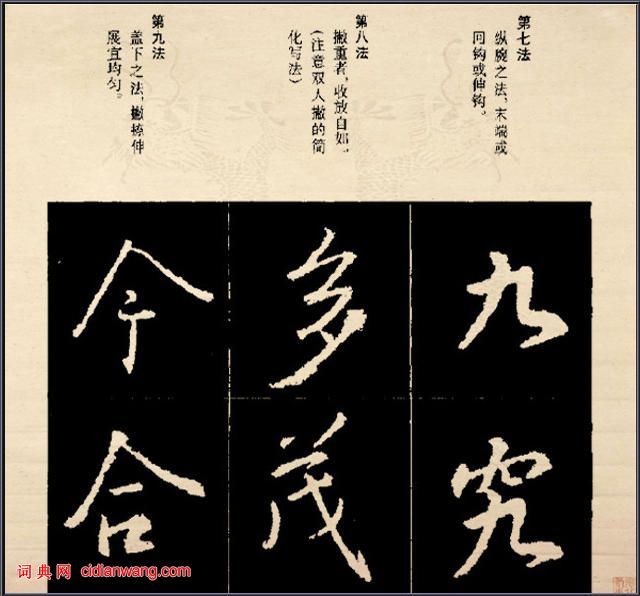 第七法
纵腕之法，末端或
回钩或伸钩。
第八法
撇重者，收放自如。
（注意双人撇的简
化写法）
第九法
盖下之法，撇捺伸
展宜均匀。
九
究
多
茂
今
合
词典网 cidianwang.com